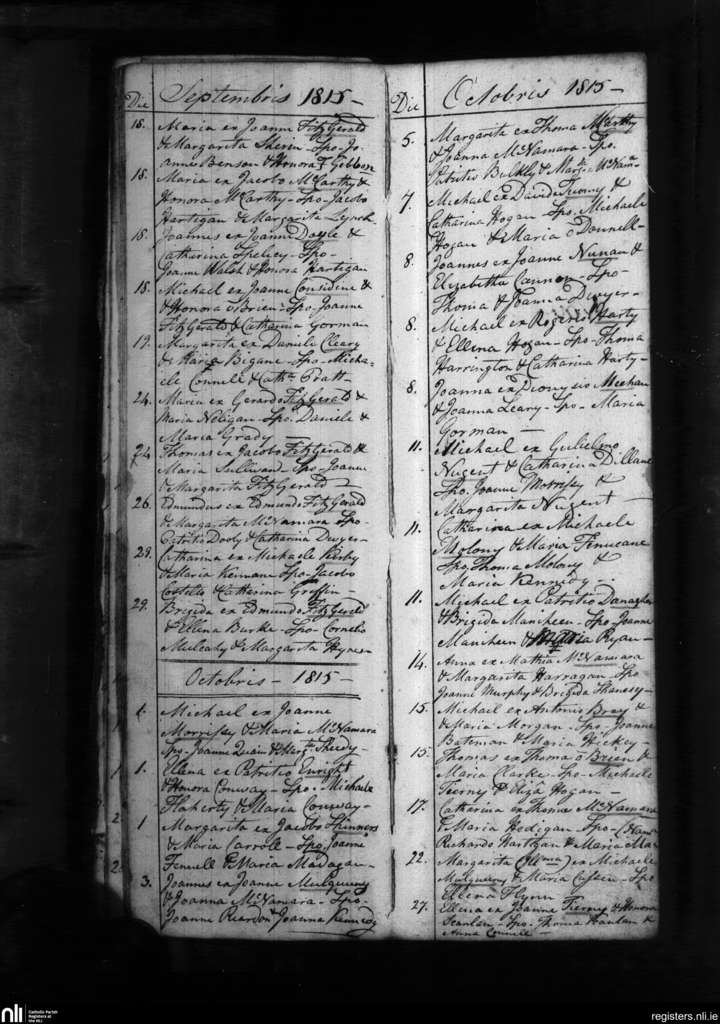 Die Septembris 1815 -
18. Maria ex Joanne FitzGerald
& Margarita Sherin - Spo - Jo-
anne Benson & Honora Gibbon
18. Maria ex Jacobo McCarthy &
Honora McCarthy - Spo - Jacobo
Hartigan & Margarita Lynch
18. Joannes ex Joanne Doyle &
Catharina - Spo -
Joanne Walsh & Honora Hartigan
18. Michael ex Joanne Considine &
& Honora OBrien - Spo - Joanne
FitzGerald & Catharina Gorman
19. Margarita ex Daniele Cleary
& Maria Begane - Spo - Micha-
ele Connell & Cath. Pratt -
24. Maria ex Gerardo FitzGerald &
Maria Neligan - Spo. Daniele &
Maria Grady -
24 Thomas ex Jacobo FitzGerald &
Maria Sullivan - Spo - Joanne
& Margarita FitzGerald -
26. Edmundus ex Edmundo FitzGerald
& Margarita McNamara - Spo -
Patritio Dooly & Catharina Dwyer -
28. Catharina ex Michaele Kirby
& Maria Kennane - Spo - Jacobo
Costelo & Catherina Griffin -
29. Brigida ex Edmundo FitzGerald
& Ellena Burke - Spo - Cornelio
Mulcahy & Margarita Hynes -
Octobris - 1815 -
1. Michael ex Joanne
Morrissey & Maria McNamara
Spo - Joanne Quain & Marg. Sheedy -
1. Ellena ex Patritio Enright
& Honora Conway - Spo - Michaele
Flaherty & Maria Conway -
1 Margarita ex Jacobo Skinners
& Maria Carroll - Spo Joanne
Fennell & Maria Madagan -
3. Joannes ex Joanne Mulqueeny
& Joanna McNamara - Spo -
Joanne Reardon & Joanna Kennedy
Die Octobris 1815 -
5. Margarita ex Thoma McCarthy
& Joanna McNamara - Spo.
Patritio Bulkly & Marg. McNam.
7. Michael ex Davide Tierny &
Catharina Hogan - Spo. Michaele
Hogan & Maria o Donnell -
8. Joannes ex Joanne Nunan &
Elizabetha Cannon - Spo -
Thoma & Joanna Dwyer -
8. Michael ex Rogerio Harty
& Ellena Hogan - Spo - Thoma
Harrington & Catharina Harty -
8. Joanna ex Dionysio Meehan
& Joanna Leary - Spo - Maria
Gorman -
11. Michael ex Gulielmo
Nugent & Catharina Dillane
Spo. Joanne Morrisey &
Margarita Nugent -
11. Catharina ex Michaele
Molony & Maria Finucane
Spo Thoma Molony &
Maria Kennedy -
11. Michael ex Patritio Donagher
& Brigida Maniheen - Spo - Joanne
Maniheen & Maria Ryan -
14. Anna ex Mathia McNamara
& Margarita Harragan - Spo
Joanne Murphy & Brigida Shanesy -
15. Michael ex Antonio Bray &
& Maria Morgan - Spo - Joanne
Bateman & Maria Hickey -
15. Thomas ex Thoma o Brien &
Maria Clarke - Spo - Michaele
Tierney & Eliza Hogan -
17. Catharina ex Thoma McNamara
& Maria Hodigan - Spo -
Richardo Hartigan & Maria Mac
22. Margarita ex Michaele
Mulqueeny & Maria - Spo
Ellena Flynn
27. Ellena ex Joanne Tierney & Honora
Scanlan - Spo - Thoma Hanlan &
Anna Connell -
nli Catholic Parish
Registers at
the NLI
registers.nli.ie